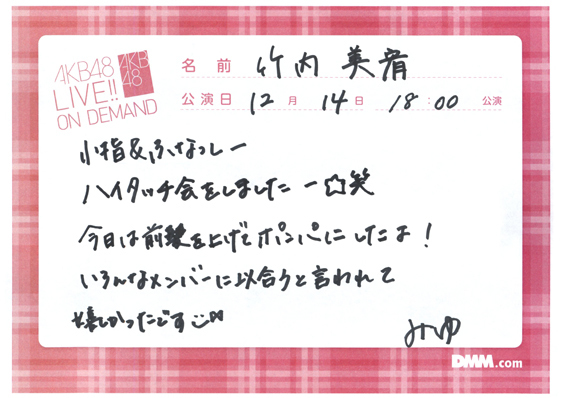 AKB48
LIVE!!
ON DEMAND
AKB
48
名前 竹内 美宥
公演日 12月 14日 18:00 公演
小指&ふなっしー
ハイタッチ会をしましたー☆笑
今日は前髪を上げてポンパにしたよ!
いろんなメンバーに似合うと言われて
嬉しかったです
みゆ
DMM.com